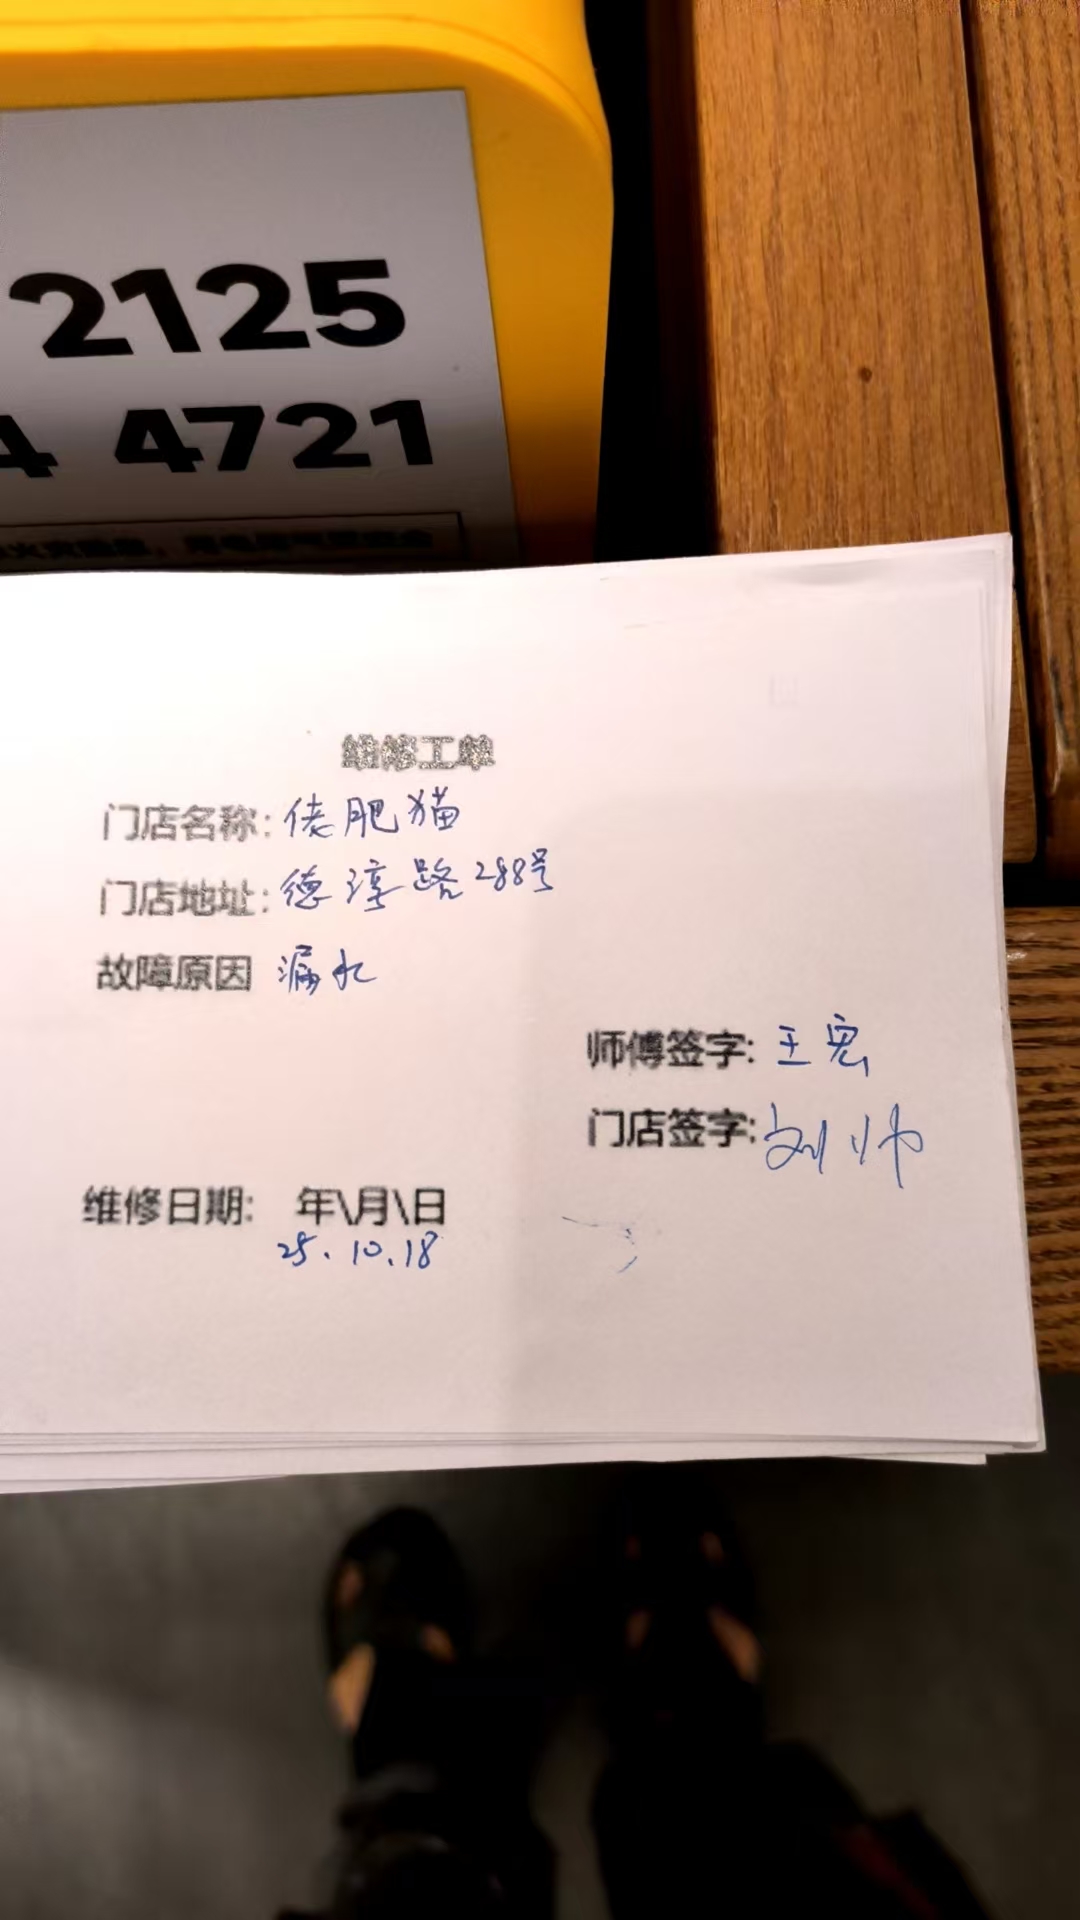 2125
4 4721
维修工单
门店名称: 佬肥猫
门店地址: 德淳路288号
故障原因 漏水
师傅签字: 王宏
门店签字: 刘帅
维修日期: 年\月\日
25.10.18